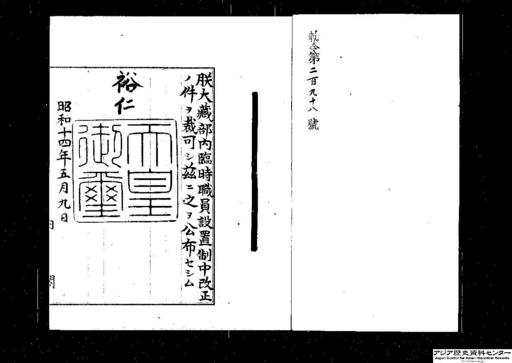 勅令第二百九十八號
朕大藏部內臨時職員設置制中改正
ノ件ヲ裁可シ茲ニ之ヲ公布セシム
裕仁
天皇御璽
昭和十四年五月九日
アジア歴史資料センター
Japan Center for Asian Historical Records